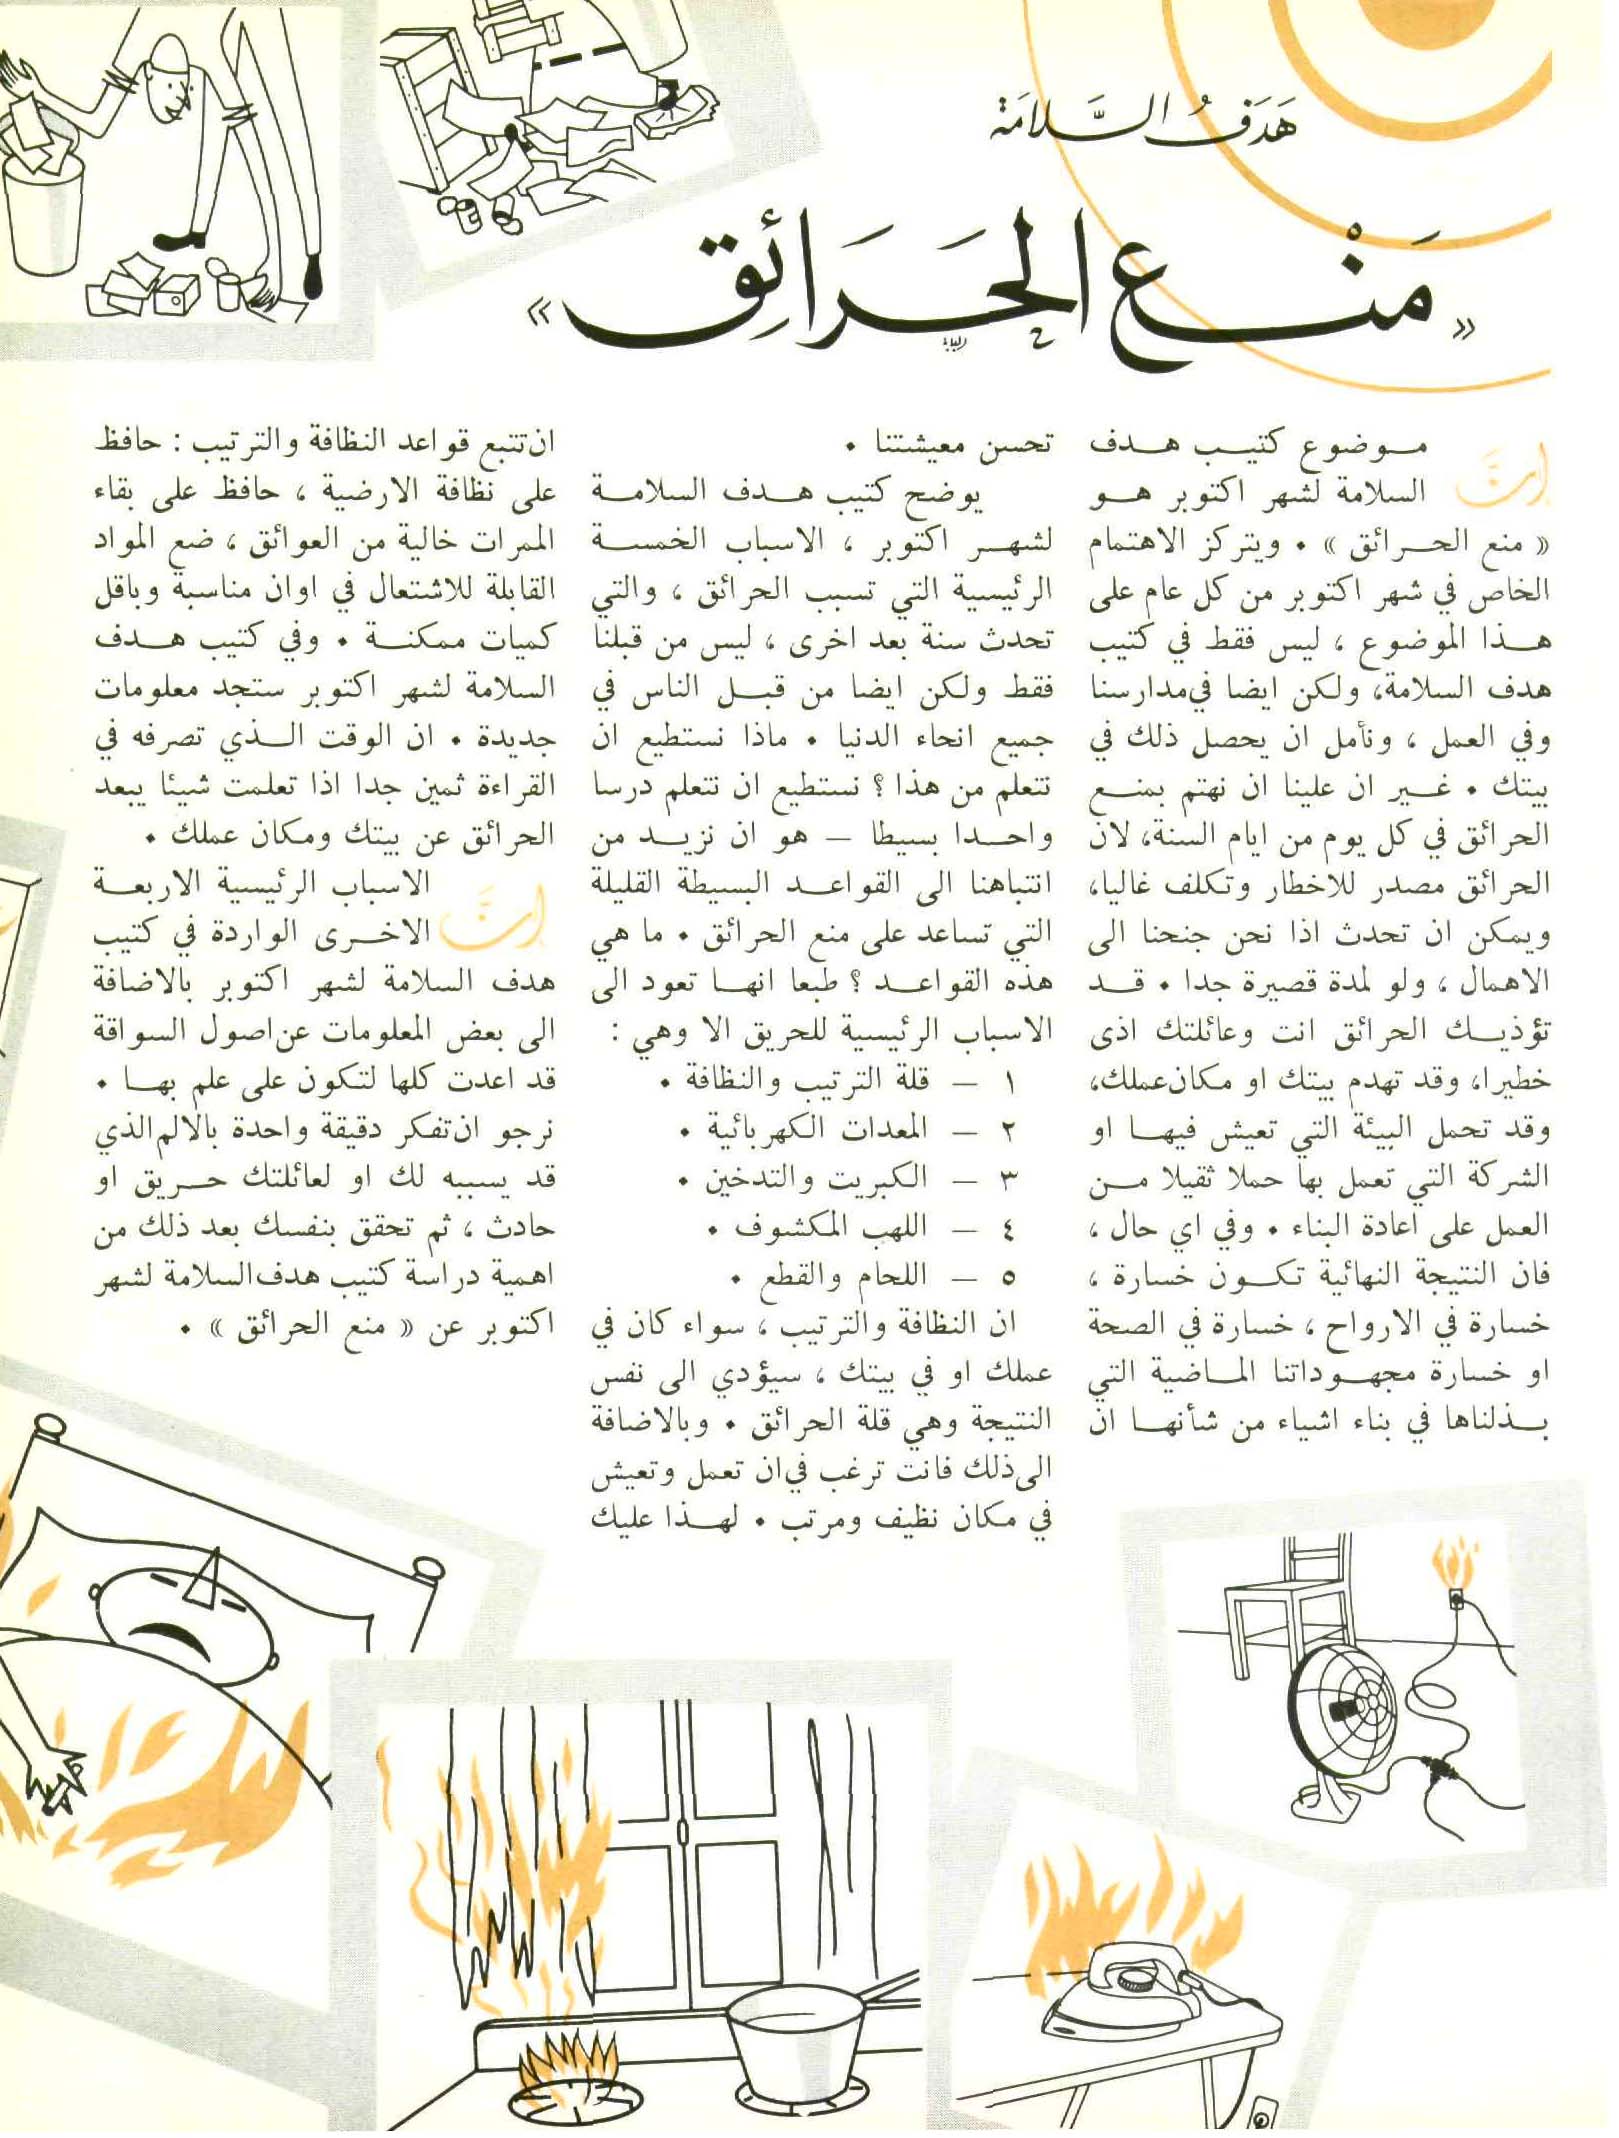 هَدَفُ السَّلامَة
« مَنْع الحَرَائِق »
إنَّ موضوع كتيب هدف
السلامة لشهر اكتوبر هو
« منع الحرائق » • ويتركز الاهتمام
الخاص في شهر اكتوبر من كل عام على
هذا الموضوع ، ليس فقط في كتيب
هدف السلامة، ولكن ايضا في مدارسنا
وفي العمل ، ونأمل ان يحصل ذلك في
بيتك • غير ان علينا ان نهتم بمنع
الحرائق في كل يوم من ايام السنة، لان
الحرائق مصدر للاخطار وتكلف غاليا،
ويمكن ان تحدث اذا نحن جنحنا الى
الاهمال ، ولو لمدة قصيرة جدا • قد
تؤذيك الحرائق انت وعائلتك اذى
خطيرا، وقد تهدم بيتك او مكان عملك،
وقد تحمل البيئة التي تعيش فيها او
الشركة التي تعمل بها حملا ثقيلا من
العمل على اعادة البناء • وفي اي حال ،
فان النتيجة النهائية تكون خسارة ،
خسارة في الارواح ، خسارة في الصحة
او خسارة مجهوداتنا الماضية التي
بذلناها في بناء اشياء من شأنها ان
تحسن معيشتنا •
يوضح كتيب هدف السلامة
لشهر اكتوبر ، الاسباب الخمسة
الرئيسية التي تسبب الحرائق ، والتي
تحدث سنة بعد اخرى ، ليس من قبلنا
فقط ولكن ايضا من قبل الناس في
جميع انحاء الدنيا • ماذا نستطيع ان
نتعلم من هذا ؟ نستطيع ان نتعلم درسا
واحدا بسيطا – هو ان نزيد من
انتباهنا الى القواعد البسيطة القليلة
التي تساعد على منع الحرائق • ما هي
هذه القواعد ؟ طبعا انها تعود الى
الاسباب الرئيسية للحريق الا وهي :
١ – قلة الترتيب والنظافة •
٢ – المعدات الكهربائية •
٣ – الكبريت والتدخين •
٤ – اللهب المكشوف •
٥ – اللحام والقطع •
ان النظافة والترتيب ، سواء كان في
عملك او في بيتك ، سيؤدي الى نفس
النتيجة وهي قلة الحرائق • وبالاضافة
الى ذلك فانت ترغب في ان تعمل وتعيش
في مكان نظيف ومرتب • لهذا عليك
ان تتبع قواعد النظافة والترتيب : حافظ
على نظافة الارضية ، حافظ على بقاء
الممرات خالية من العوائق ، ضع المواد
القابلة للاشتعال في اوان مناسبة وباقل
كميات ممكنة • وفي كتيب هدف
السلامة لشهر اكتوبر ستجد معلومات
جديدة • ان الوقت الذي تصرفه في
القراءة ثمين جدا اذا تعلمت شيئا يبعد
الحرائق عن بيتك ومكان عملك •
إنَّ الاسباب الرئيسية الاربعة
الاخرى الواردة في كتيب
هدف السلامة لشهر اكتوبر بالاضافة
الى بعض المعلومات عن اصول السواقة
قد اعدت كلها لتكون على علم بها •
نرجو ان تفكر دقيقة واحدة بالالم الذي
قد يسببه لك او لعائلتك حريق او
حادث ، ثم تحقق بنفسك بعد ذلك من
اهمية دراسة كتيب هدف السلامة لشهر
اكتوبر عن « منع الحرائق » •